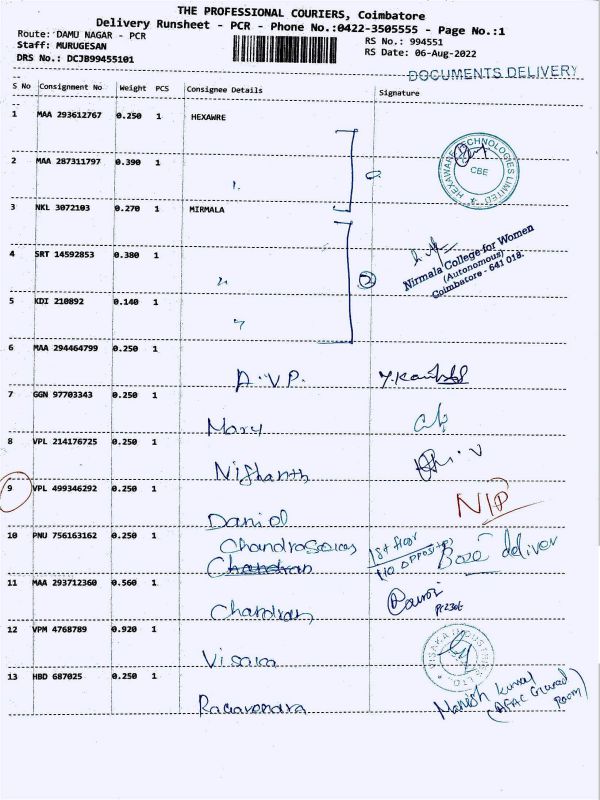 THE PROFESSIONAL COURIERS, Coimbatore
Delivery Runsheet - PCR - Phone No.:0422-3505555 - Page No.:1
Route: DAMU NAGAR - PCR
Staff: MURUGESAN
DRS No.: DCJB99455101
RS No.: 994551
RS Date: 06-Aug-2022
DOCUMENTS DELIVERY
S No Consignment No Weight PCS Consignee Details Signature
1 MAA 293612767 0.250 1 HEXAWRE
HEXAWARE TECHNOLOGIES LIMITED
CBE
2 MAA 287311797 0.390 1
3 NKL 3072103 0.270 1 MIRMALA
4 SRT 14592853 0.380 1
Nirmala College for Women
(Autonomous)
Coimbatore - 641 018.
5 KDI 210892 0.140 1
6 MAA 294464799 0.250 1 A.V.P.
7 GGN 97703343 0.250 1 Mary
8 VPL 214176725 0.250 1 Nishanth
9 VPL 499346292 0.250 1 Daniel
10 PNU 756163162 0.250 1
1st floor
opposite deliver
Chandran
11 MAA 293712360 0.560 1 Chandran
12 VPM 4768789 0.920 1 Visaka
VISAKA INDUSTRIES LTD
13 HBD 687025 0.250 1 Ragavendra
Manish Kumar
Room)